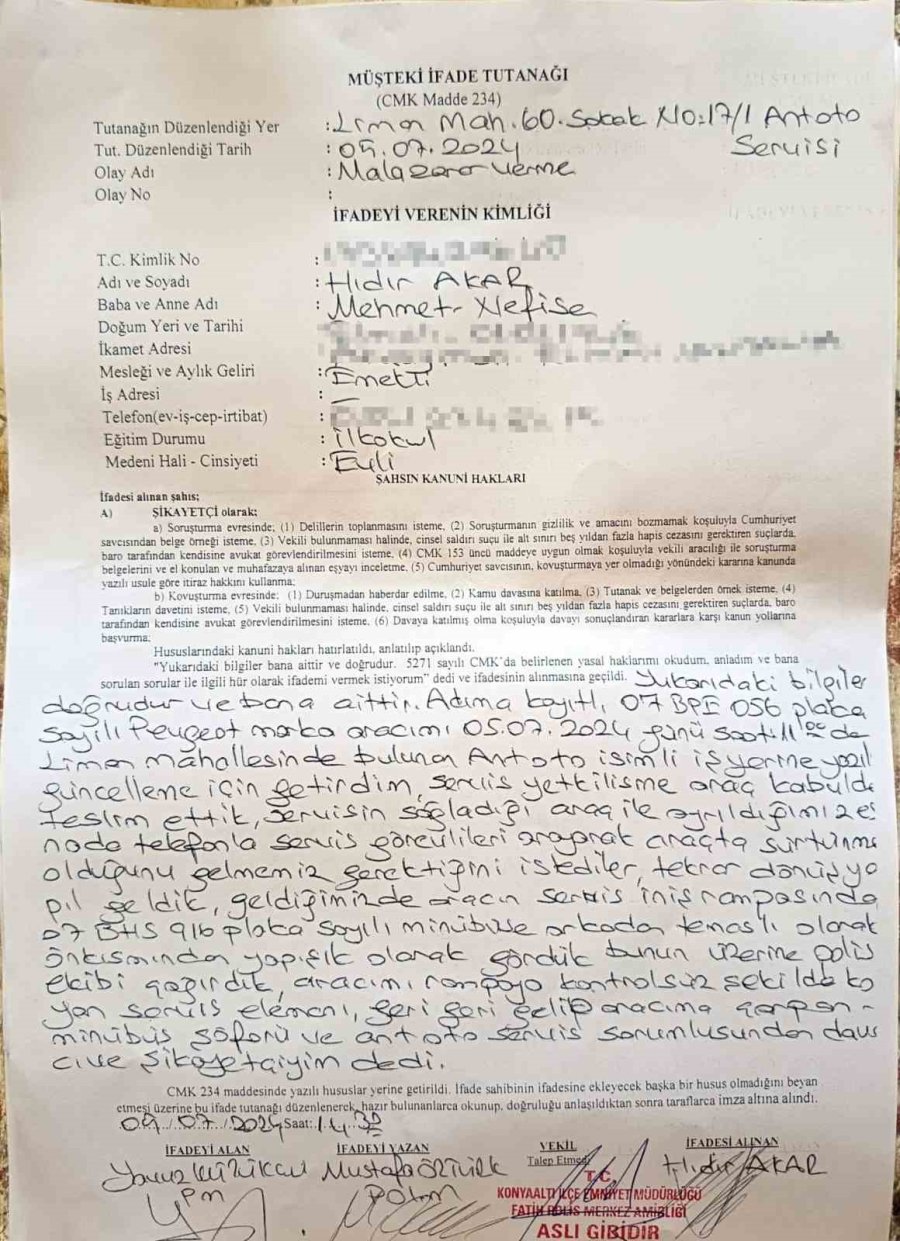 MÜŞTEKİ İFADE TUTANAĞI
(CMK Madde 234)
Tutanağın Düzenlendiği Yer : Liman Mah. 60. Sokak No:17/1 Antoto Servisi
Tut. Düzenlendiği Tarih : 05.07.2024
Olay Adı : Mala zarar verme
Olay No :
İFADEYİ VERENİN KİMLİĞİ
T.C. Kimlik No :
Adı ve Soyadı : Hıdır AKAR
Baba ve Anne Adı : Mehmet - Nefise
Doğum Yeri ve Tarihi
İkamet Adresi
Mesleği ve Aylık Geliri : Emekli
İş Adresi : —
Telefon(ev-iş-cep-irtibat) :
Eğitim Durumu : İlkokul
Medeni Hali - Cinsiyeti : Evli
ŞAHSIN KANUNİ HAKLARI
İfadesi alınan şahıs;
A) ŞİKAYETÇİ olarak;
a) Soruşturma evresinde; (1) Delillerin toplanmasını isteme, (2) Soruşturmanın gizlilik ve amacını bozmamak koşuluyla Cumhuriyet
savcısından belge örneği isteme, (3) Vekili bulunmaması halinde, cinsel saldırı suçu ile alt sınırı beş yıldan fazla hapis cezasını gerektiren suçlarda,
baro tarafından kendisine avukat görevlendirilmesini isteme, (4) CMK 153 üncü maddeye uygun olmak koşuluyla vekili aracılığı ile soruşturma
belgelerini ve el konulan ve muhafazaya alınan eşyayı inceletme, (5) Cumhuriyet savcısının, kovuşturmaya yer olmadığı yönündeki kararına kanunda
yazılı usule göre itiraz hakkını kullanma;
b) Kovuşturma evresinde; (1) Duruşmadan haberdar edilme, (2) Kamu davasına katılma, (3) Tutanak ve belgelerden örnek isteme, (4)
Tanıkların davetini isteme, (5) Vekili bulunmaması halinde, cinsel saldırı suçu ile alt sınırı beş yıldan fazla hapis cezasını gerektiren suçlarda, baro
tarafından kendisine avukat görevlendirilmesini isteme, (6) Davaya katılmış olma koşuluyla davayı sonuçlandıran kararlara karşı kanun yollarına
başvurma;
Hususlarındaki kanuni hakları hatırlatıldı, anlatılıp açıklandı.
"Yukarıdaki bilgiler bana aittir ve doğrudur. 5271 sayılı CMK'da belirlenen yasal haklarımı okudum, anladım ve bana
sorulan sorular ile ilgili hür olarak ifademi vermek istiyorum" dedi ve ifadesinin alınmasına geçildi. Yukarıdaki bilgiler
doğrudur ve bana aittir. Adıma kayıtlı, 07 BPE 056 plaka
sayılı Peugeot marka aracımı 05.07.2024 günü saat:11 00 de
Liman mahallesinde bulunan Antoto isimli işyerine yazıl
güncelleme için getirdim, servis yetkilisine araç kabulde
teslim ettik, servisin sağladığı araç ile ayrıldığımız es
nada telefonla servis görevlileri arayarak araçta sürtünme
olduğunu gelmemiz gerektiğini istediler, tekrar dönüş ya
pıl geldik, geldiğimizde aracın servis iniş rampasında
07 BHS 916 plaka sayılı minübüse arkadan temaslı olarak
önkısmından yapışık olarak gördük bunun üzerine polis
ekibi çağırdık, aracımı rampaya kontrolsüz şekilde ko
yan servis elemanı, geri geri gelip aracıma çarpan
minübüs şöförü ve antoto servis sorumlusundan dava
cı ve şikayetçiyim dedi.
CMK 234 maddesinde yazılı hususlar yerine getirildi. İfade sahibinin ifadesine ekleyecek başka bir husus olmadığını beyan
etmesi üzerine bu ifade tutanağı düzenlenerek, hazır bulunanlarca okunup, doğruluğu anlaşıldıktan sonra taraflarca imza altına alındı.
05./07./2024 Saat:14.30
İFADEYİ ALAN İFADEYİ YAZAN VEKİL İFADESİ ALINAN
Talep Etmedi
Yavuz Mustafa ÖZTÜRK Hıdır AKAR
T.C.
KONYAALTI İLÇE EMNİYET MÜDÜRLÜĞÜ
FATİH POLİS MERKEZ AMİRLİĞİ
ASLI GİBİDİR